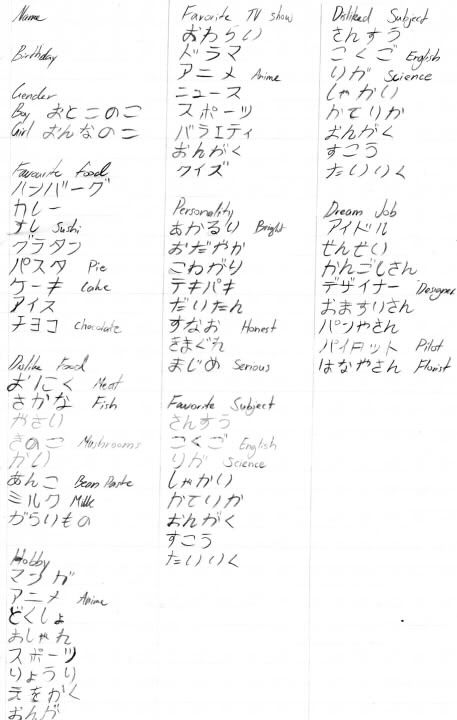 Name
Birthday
Gender
Boy おとこのこ
Girl おんなのこ
Favourite food
ハンバーグ
カレー
すし Sushi
グラタン
パスタ Pie
ケーキ Cake
アイス
チョコ Chocolate
Dislike Food
おにく Meat
さかな Fish
やさい
きのこ Mushrooms
かい
あんこ Bean Paste
ミルク Milk
からいもの
Hobby
マンガ
アニメ Anime
どくしょ
おしゃれ
スポーツ
りょうり
えをかく
おんが
Favorite TV show
おわらい
ドラマ
アニメ Anime
ニュース
スポーツ
バラエティ
おんがく
クイズ
Personality
あかるい Bright
おだやか
こわがり
テキパキ
だいたん
すなお Honest
きまぐれ
まじめ Serious
Favorite Subject
さんすう
こくご English
りか Science
しゃかい
かていか
おんがく
ずこう
たいいく
Disliked Subject
さんすう
こくご English
りか Science
しゃかい
かていか
おんがく
ずこう
たいいく
Dream Job
アイドル
せんせい
かんごしさん
デザイナー Designer
およめさん
パンやさん
パイロット Pilot
はなやさん Florist